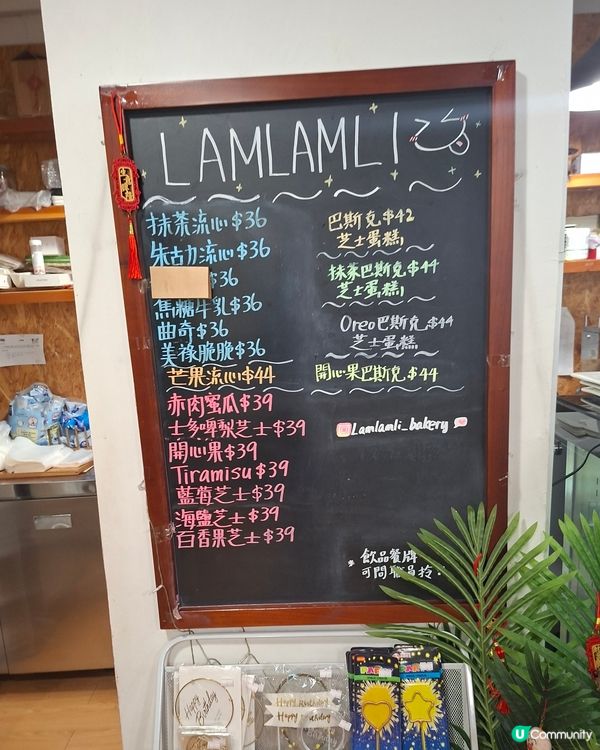 LAMLAMLI
抹茶流心$36
朱古力流心$36
$36
焦糖牛乳$36
曲奇$36
美祿脆脆$36
芒果流心$44
赤肉蜜瓜$39
士多啤梨芝士$39
開心果$39
Tiramisu$39
藍莓芝士$39
海鹽芝士$39
百香果芝士$39
巴斯克$42
芝士蛋糕
抹茶巴斯克$44
芝士蛋糕
Oreo巴斯克$44
芝士蛋糕
開心果巴斯克$44
Lamlamli_bakery
*飲品餐牌
可問職員拎!
Happy Birthday
Happy Birthday
U Community